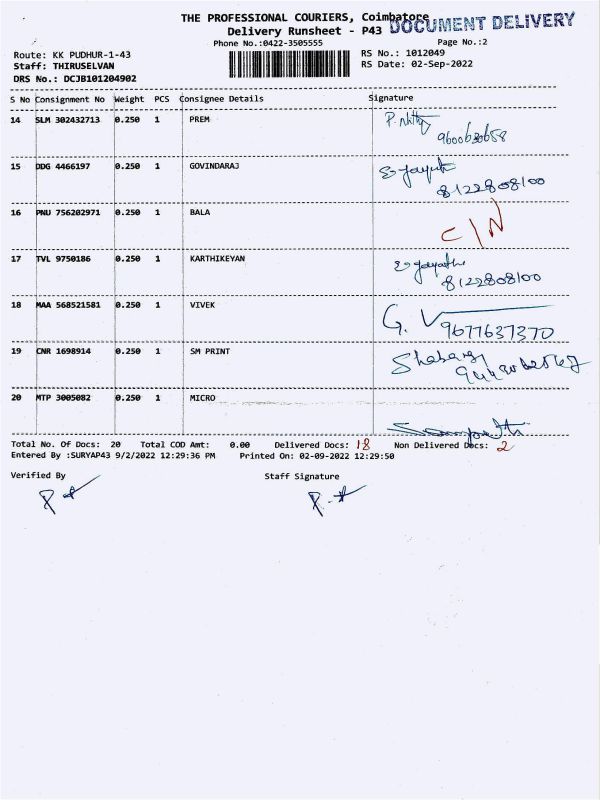 THE PROFESSIONAL COURIERS, Coimbatore
DOCUMENT DELIVERY
Delivery Runsheet - P43
Phone No.:0422-3505555 Page No.:2
Route: KK PUDHUR-1-43 RS No.: 1012049
Staff: THIRUSELVAN RS Date: 02-Sep-2022
DRS No.: DCJB101204902
S No Consignment No Weight PCS Consignee Details Signature
14 SLM 302432713 0.250 1 PREM
15 DDG 4466197 0.250 1 GOVINDARAJ
8122808100
16 PNU 756202971 0.250 1 BALA
C/N
17 TVL 9750186 0.250 1 KARTHIKEYAN
8122808100
18 MAA 568521581 0.250 1 VIVEK G. V
9677637370
19 CNR 1698914 0.250 1 SM PRINT
20 MTP 3005082 0.250 1 MICRO
Total No. Of Docs: 20 Total COD Amt: 0.00 Delivered Docs: 18 Non Delivered Docs: 2
Entered By :SURYAP43 9/2/2022 12:29:36 PM Printed On: 02-09-2022 12:29:50
Verified By Staff Signature